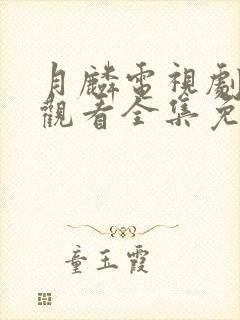 月麟電視劇
觀看全集免
童玉霞